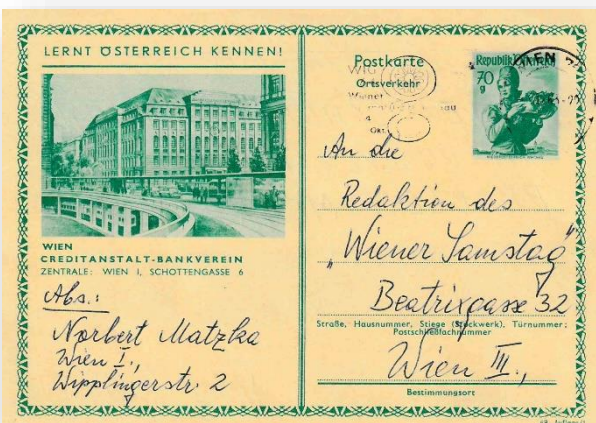 LERNT ÖSTERREICH KENNEN!
WIEN
CREDITANSTALT-BANKVEREIN
ZENTRALE: WIEN I, SCHOTTENGASSE 6
Abs.:
Norbert Matzka
Wien I.,
Wipplingerstr. 2
Postkarte
Ortsverkehr
Wiener
Okt.
Republik Österreich
70
g
WIEN
An die
Redaktion des
„Wiener Samstag"
Beatrixgasse 32
Straße, Hausnummer, Stiege (Stockwerk), Türnummer;
Postschließfachnummer
Wien III.,
Bestimmungsort